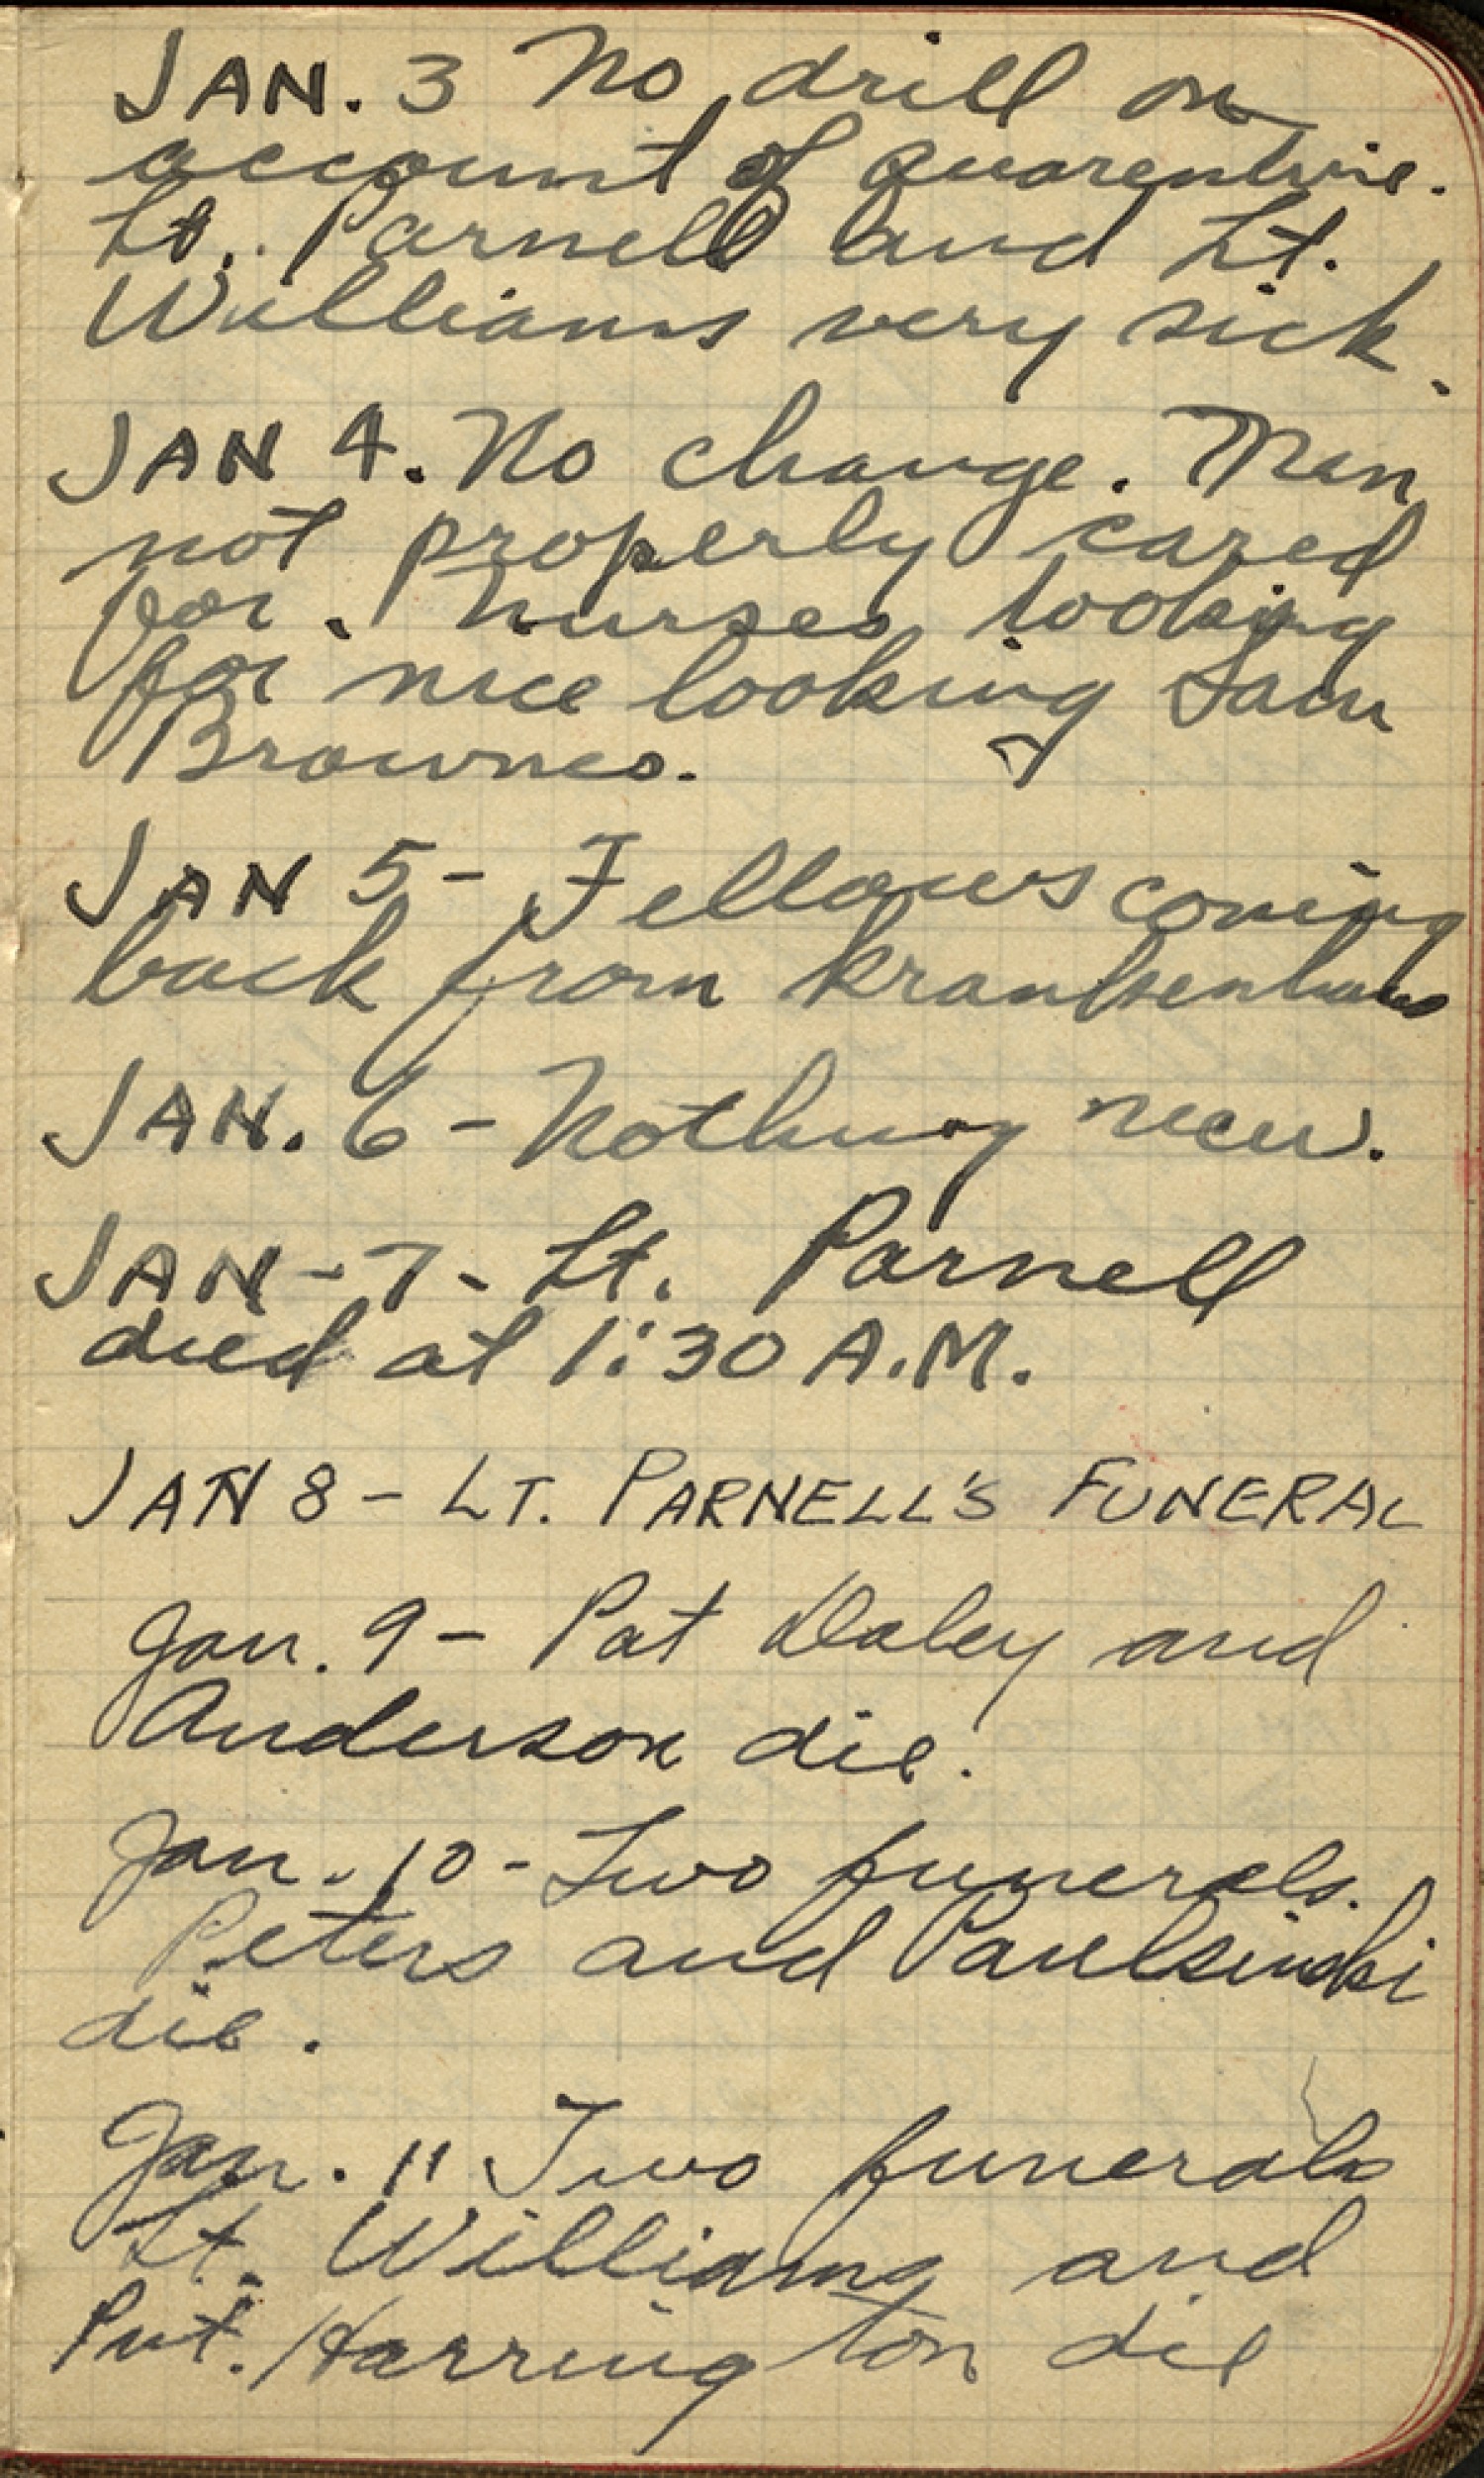 JAN. 3 No drill on
account of quarentine.
Lt. Parnell and Lt.
Williams very sick.
JAN 4. No change. Men
not properly cared
for. Nurses looking
for nice looking Sam
Brownes.
JAN 5 - Fellows coming
back from krankenhaus
JAN. 6 - Nothing new.
JAN - 7 - Lt. Parnell
died at 1:30 A.M.
JAN 8 - LT. PARNELL'S FUNERAL
Jan. 9 - Pat Daley and
Anderson die.
Jan. 10 - Two funerals.
Peters and Paulsinski
die.
Jan. 11 Two funerals
Lt. Williams and
Pvt. Harrington die